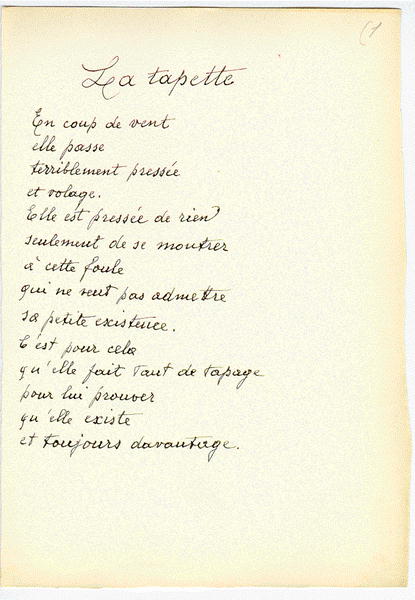 (1
La tapette
En coup de vent
elle passe
terriblement pressée
et volage.
Elle est pressée de rien
seulement de se montrer
à cette foule
qui ne veut pas admettre
sa petite existence.
C'est pour cela
qu'elle fait tant de tapage
pour lui prouver
qu'elle existe
et toujours davantage.